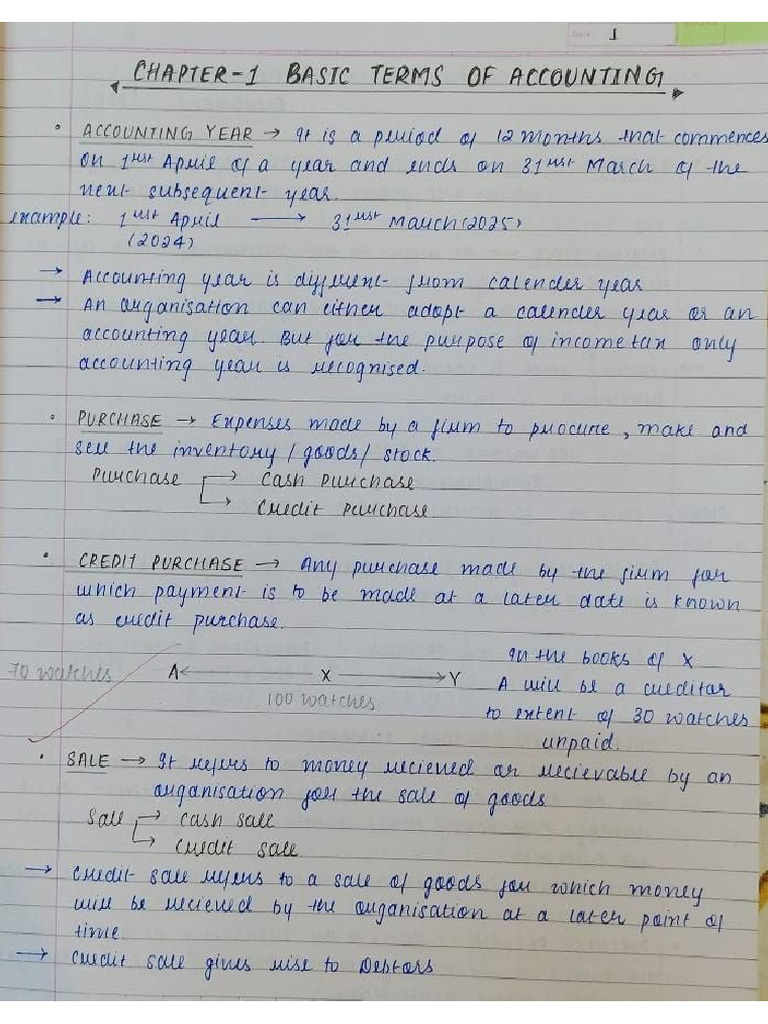 Date 1
CHAPTER-1 BASIC TERMS OF ACCOUNTING
• ACCOUNTING YEAR → It is a period of 12 months that commences
on 1st April of a year and ends on 31st March of the
next subsequent year.
example: 1st April → 31st March (2025)
(2024)
→ Accounting year is different from calender year
→ An organisation can either adopt a calender year or an
accounting year. But for the purpose of income tax only
accounting year is recognised.
• PURCHASE → Expenses made by a firm to procure, make and
sell the inventory / goods / stock.
Purchase → Cash purchase
→ Credit purchase.
• CREDIT PURCHASE → Any purchase made by the firm for
which payment is to be made at a later date is known
as credit purchase.
In the books of X
70 watches A ← X → Y A will be a creditar
100 watches to extent of 30 watches
unpaid.
• SALE → It refers to money recieved or recievable by an
organisation for the sale of goods
Sale → Cash sale
→ Credit sale
→ Credit sale refers to a sale of goods for which money
will be recieved by the organisation at a later point of
time
→ Credit sale gives rise to Debtors